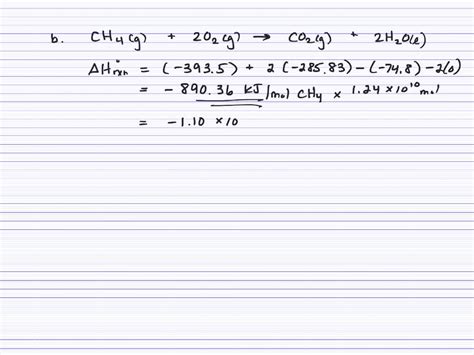 b. CH4(g) + 2O2(g) → CO2(g) + 2H2O(l)
ΔH°rxn = (-393.5) + 2(-285.83) - (-74.8) - 2(0)
= -890.36 KJ/mol CH4 × 1.24 × 10^10 mol
= -1.10 × 10